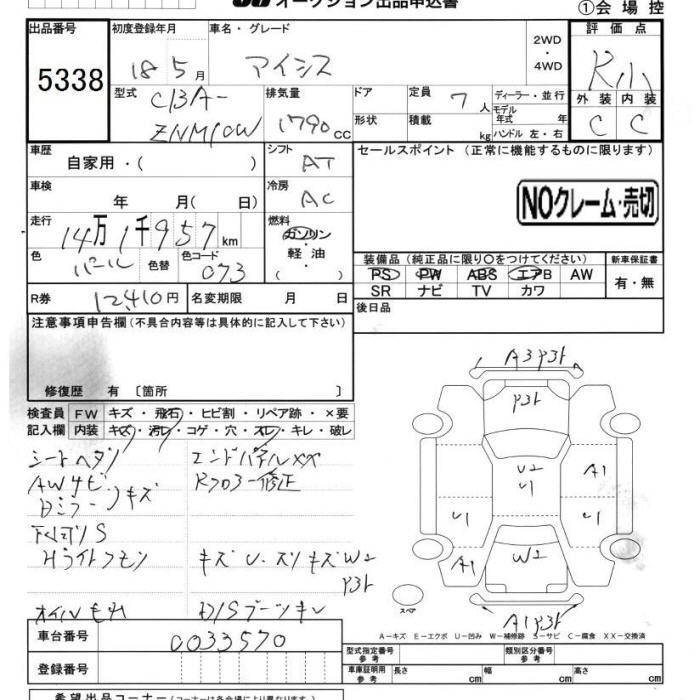 オークション出品申込書
①会場控
出品番号 初度登録年月 車名・グレード 評価点
5338
18 5月 アイシス 2WD・4WD R小
外装 内装
C C
型式 CBA-ZNM10W 排気量 1790cc ドア 形状 定員 7人 積載 kg ディーラー・並行 モデル年式 年 ハンドル 左・右
車歴 自家用・( ) シフト AT セールスポイント (正常に機能するものに限ります)
車検 年 月( 日) 冷房 AC NOクレーム・売切
走行 14万1千957km 燃料 ガソリン・軽油 ( )
色 パール 色替 色コード 073
装備品 (純正品に限り○をつけてください) 新車保証書
PS PW ABS エアB AW 有・無
SR ナビ TV カワ
R券 12,410円 名変期限 月 日 後日品
注意事項申告欄 (不具合内容等は具体的に記入して下さい)
修復歴 有 〔箇所 〕
検査員記入欄 FW キズ・飛石・ヒビ割・リペア跡・×要
内装 キズ・汚レ・コゲ・穴・スレ・キレ・破レ
シートヘタリ エンドパネルXX
AWサビ Rフロアー修正
Dミラーキズ
下回りS
Hライトクモリ キズ U・スリキズ W2
P31
オイルモレ D/Sブーツキレ
A3 P31
P31
U2
U1
A1
U1
U1
A1
W2
A1 P31
スペア
A-キズ E-エクボ U-凹み W-補修跡 S-サビ C-腐食 XX-交換済
車台番号 0033570
登録番号
型式指定番号 参考 類別区分番号 参考
車庫証明用 参考 長さ cm 幅 cm 高さ cm
希望出品コーナー (コーナーは各会場により異なります)